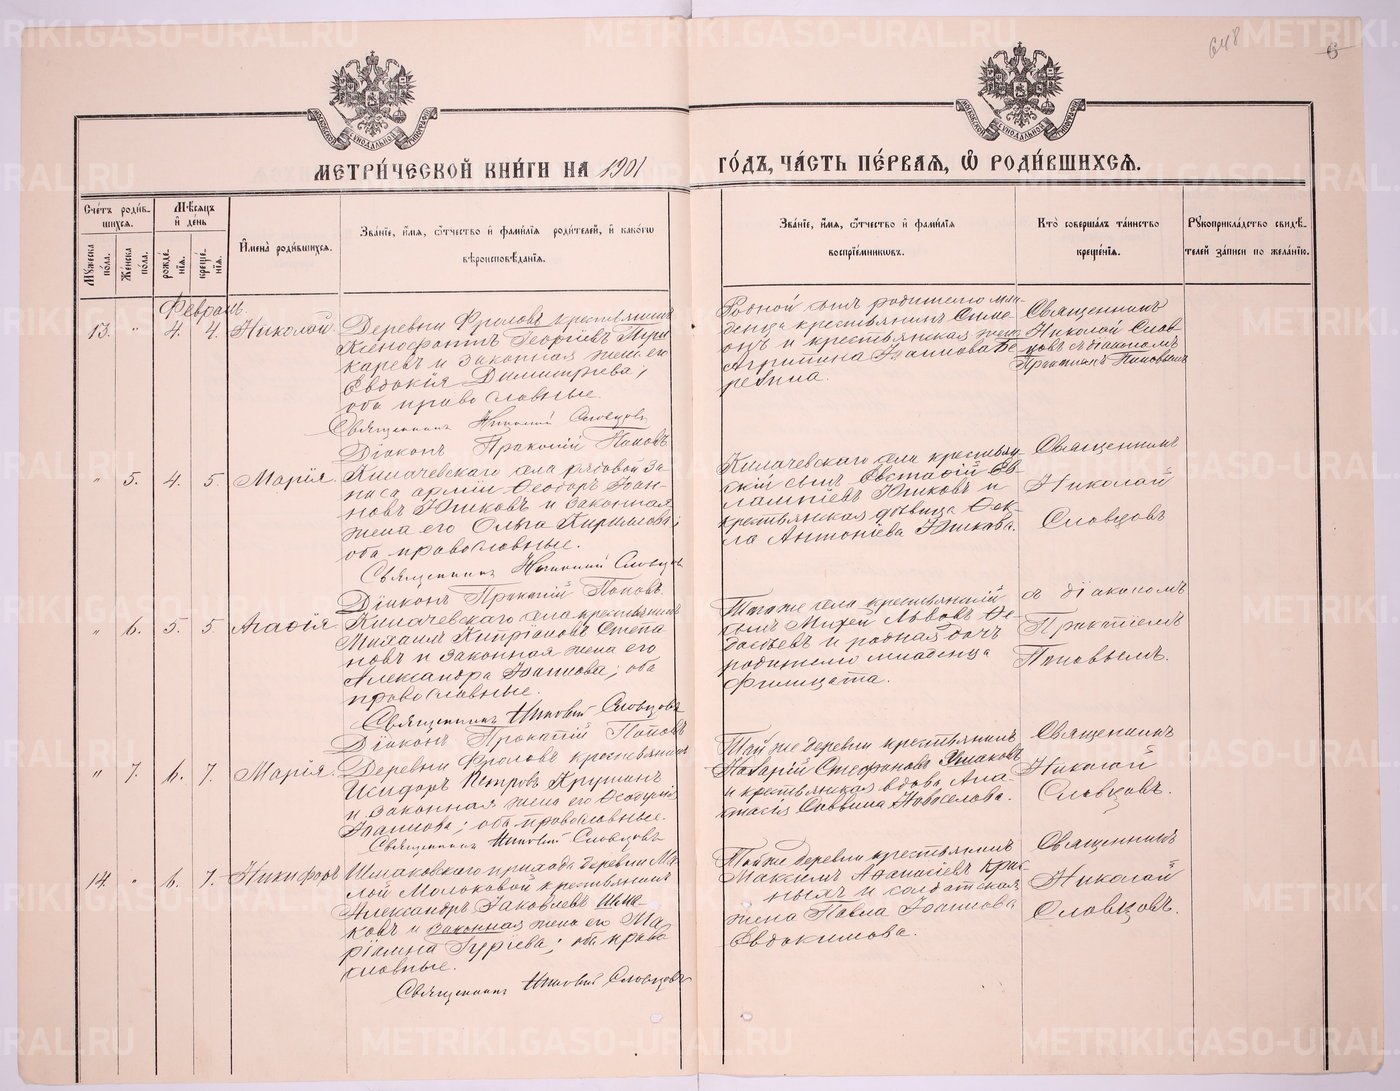 648
6
МЕТРИ́ЧЕСКОЙ КНИ́ГИ НА 1901 ГО́ДЪ, ЧА́СТЬ ПЕ́РВАЯ, Ѡ РОДИ́ВШИХСЯ.
Сче́тъ роди́в-
шихся.
Му́жеска по́ла.
Же́нска по́ла.
Мѣ́сяцъ и́ де́нь
рожде́-
нія.
креще́-
нія.
И́мена̀ роди́вшихся.
Зва́ніе, и́мя, ѻ́тчество и́ фами́лія роди́телей, и́ како́гѡ
вѣроисповѣ́данія.
Зва́ніе, и́мя, ѻ́тчество и́ фами́лія
воспріе́мниковъ.
Кто̀ соверша́лъ та́инство
креще́нія.
Рукоприкла́дство свидѣ́-
телей за́писи по жела́нію.
Февраль.
13. " 4. 4. Николай
Деревни Фролов крестьянинъ
Ксенофонтъ Георгіевъ
каревъ и законная жена его
Евдокія Димитріева;
оба православные.
Священникъ Николай Словцовъ
Діаконъ Прокопій Поповъ
Родной сынъ родителю мла-
денца крестьянинъ Симе-
онъ и крестьянская жена
Агрипина Іоаннова Бе-
резина.
Священникъ
Николай Слов-
цовъ съ діакономъ
Прокопіемъ Поповымъ
" 5. 4. 5. Марія
Килачевскаго села рядовой за-
паса арміи Ѳеодоръ Іоан-
новъ Юшковъ и законная
жена его Ольга Кирилова;
оба православные.
Священникъ Николай Словцов
Діаконъ Прокопій Поповъ.
Килачевскаго села крестьян-
скій сынъ Евстафій Ев-
лампіевъ Юшковъ и
крестьянская дѣвица Ѳек-
ла Антоніева Юшкова.
Священникъ
Николай
Словцовъ
" 6. 5. 5 Агафія
Килачевскаго села крестьянинъ
Михаилъ Кипріановъ Степа-
новъ и законная жена его
Александра Іоаннова; оба
православные.
Священникъ Николай Словцовъ
Діаконъ Прокопій Поповъ
Того же села крестьянскій
сынъ Михей Львовъ Ѳе-
досѣевъ и родная дочь
родителю младенца
Филицата.
съ діакономъ
Прокопіемъ
Поповымъ.
" 7. 6. 7. Марія.
Деревни Фролов крестьянинъ
Исидоръ Петровъ
и законная жена его Ѳеодосія
Іоаннова; оба православные.
Священникъ Николай Словцовъ
Той же деревни крестьянинъ
Назарій Стефановъ Ушаковъ
и крестьянская вдова Ана-
стасія Саввина Новоселова.
Священникъ
Николай
Словцовъ.
14. " 6. 7. Никифоръ
Шмаковскаго прихода деревни Ма-
лой Молоковой крестьянинъ
Александръ Іаковлевъ Шма-
ковъ и законная жена его Ма-
ріамна Гуріева; оба право-
славные.
Священникъ Николай Словцовъ
Той же деревни крестьянинъ
Максимъ Аѳанасіевъ Крас-
ныхъ и солдатская
жена Павла Іоаннова
Евдокимова.
Священникъ
Николай
Словцовъ.
METRIKI.GASO-URAL.RU